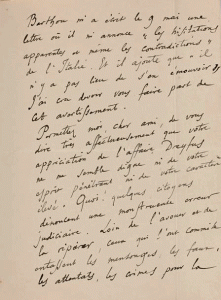 Barthou m'a écrit le 9 mai une
lettre où il m'annonce "les hésitations
apparentes et même les contradictions"
de l'Italie. Et il ajoute que "il
n'y a pas lieu de s'en émouvoir".
J'ai cru devoir vous faire part de
cet avertissement.
Permettez moi, cher ami, de vous
dire très affectueusement que votre
appréciation de l'affaire Dreyfus
ne me semble digne ni de votre
esprit pénétrant ni de votre caractère
élevé. Quoi! quelques citoyens
dénoncent une monstrueuse erreur
judiciaire. Loin de l'avouer et de
la réparer, ceux qui l'ont commise
entassent les mensonges, les faux,
les attentats, les crimes pour la